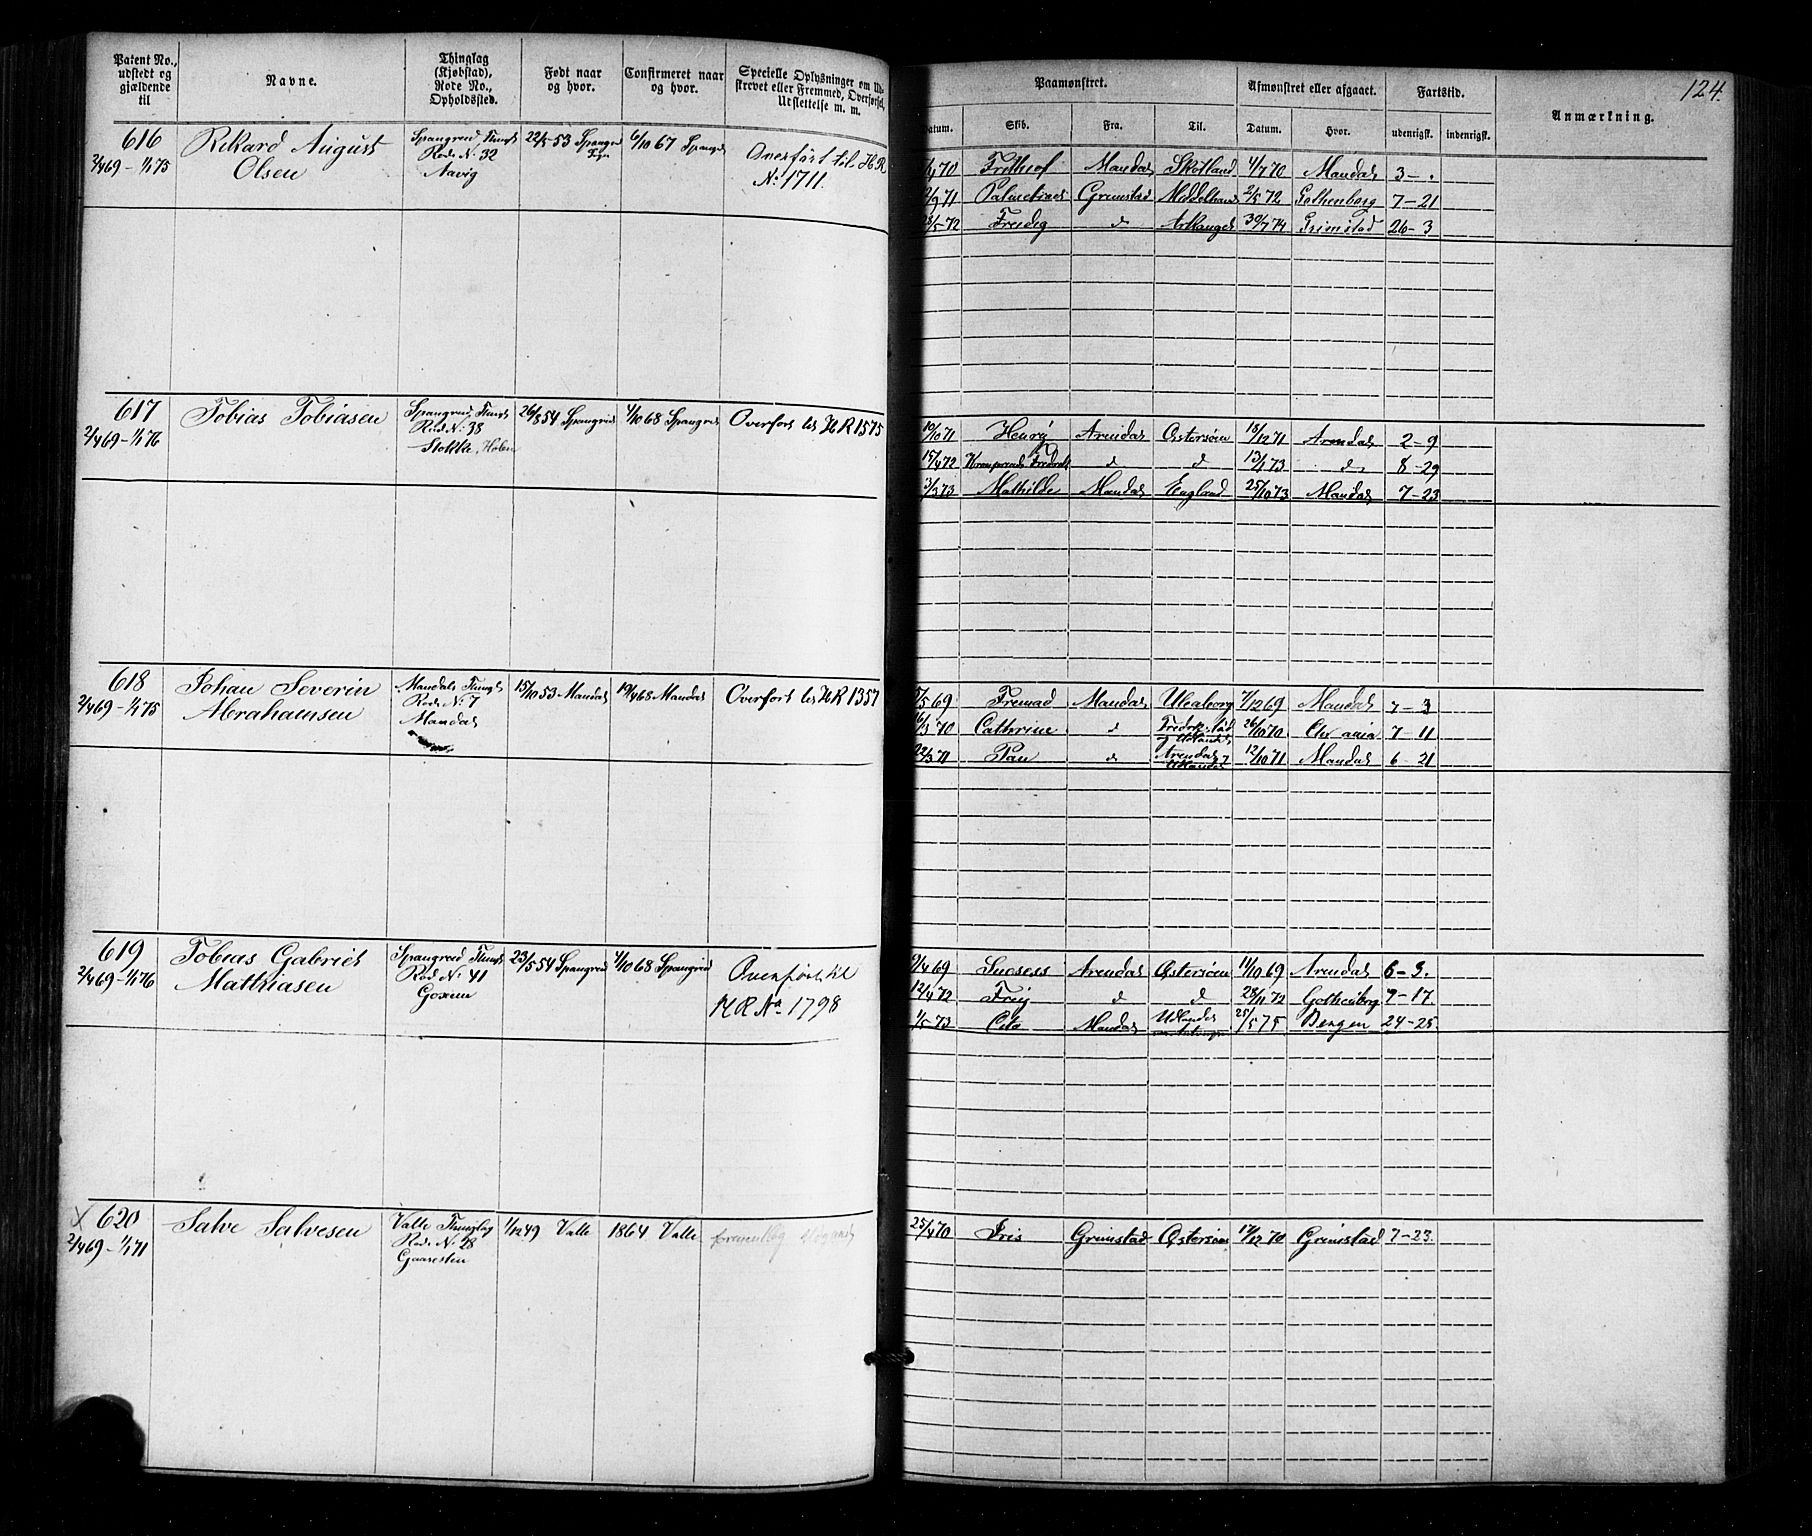 Patent No., udstedt og gjældende til
Navne.
Thinglag (Kjøbstad), Rode No., Opholdssted.
Født naar og hvor.
Confirmeret naar og hvor.
Specielle Oplysninger om Udskrevet eller Fremmed, Overførsel, Udslettelse m. m.
Paamønstret.
Afmønstret eller afgaaet.
Fartstid.
Anmærkning.
124.
Datum. Skib. Fra. Til. Datum. Hvor. udenrigsk. indenrigsk.
616
2/4 69 – 1/1 75
Rikard August
Olsen
Spangreid Thingl
Rode No. 32
Navig
22/5 53 Spangreid
6/10 67 Spangr
Overført til HR
No. 1711.
70 Frithiof Mandal Skotland 4/7 70 Mandal 3 – .
71 Grimstad Middelhavet 2/5 72 Gothenborg 7 – 21
72 Freidig d Arkangel 30/7 74 Grimstad 26 – 3
617
2/4 69 – 1/1 76
Tobias Tobiasen
Spangreid Thingl
Rode No. 38
Stokke, Holen
26/8 54 Spangreid
4/10 68 Spangreid
Overført til HR 1575
19/10 71 Henry Arendal Østersøen 18/12 71 Arendal 2 – 9
15/4 72 d d 13/1 73 d 8 – 29
3/3 73 Mathilde Mandal England 25/10 73 Mandal 7 – 23
618
2/4 69 – 1/1 75
Johan Severin
Abrahamsen
Mandals Thingl
Rode No. 7
Mandal
15/10 53 Mandal
19/4 68 Mandal
Overført til HR 1357
69 Fremad Mandal Uleaborg 7/12 69 Mandal 7 – 3
70 Cathrine d Fredrikstad
og Udlandet 26/10 70 Chr aaia 7 – 11
71 Pan d Arendal
Udlandet 12/10 71 Mandal 6 – 21
619
2/4 69 – 1/1 76
Tobias Gabriel
Matthiasen
Spangreid Thingl
Rode No. 41
23/5 54 Spangreid
4/10 68 Spangreid
Overført til
HR No. 1798
9/4 69 Sucsess Arendal Østersøen 11/10 69 Arendal 6 – 3.
12/4 72 Frig d d 28/11 72 Gothenborg 7 – 17.
1/5 73 Mandal Udlandet 25/5 75 Bergen 24 – 25.
x 620
2/4 69 – 1/1 71
Salve Salvesen
Valle Thinglag
Rode No. 28
1/12 49 Valle
1864 Valle
25/4 70 Iris Grimstad Østersøen 17/12 70 Grimstad 7 – 23.